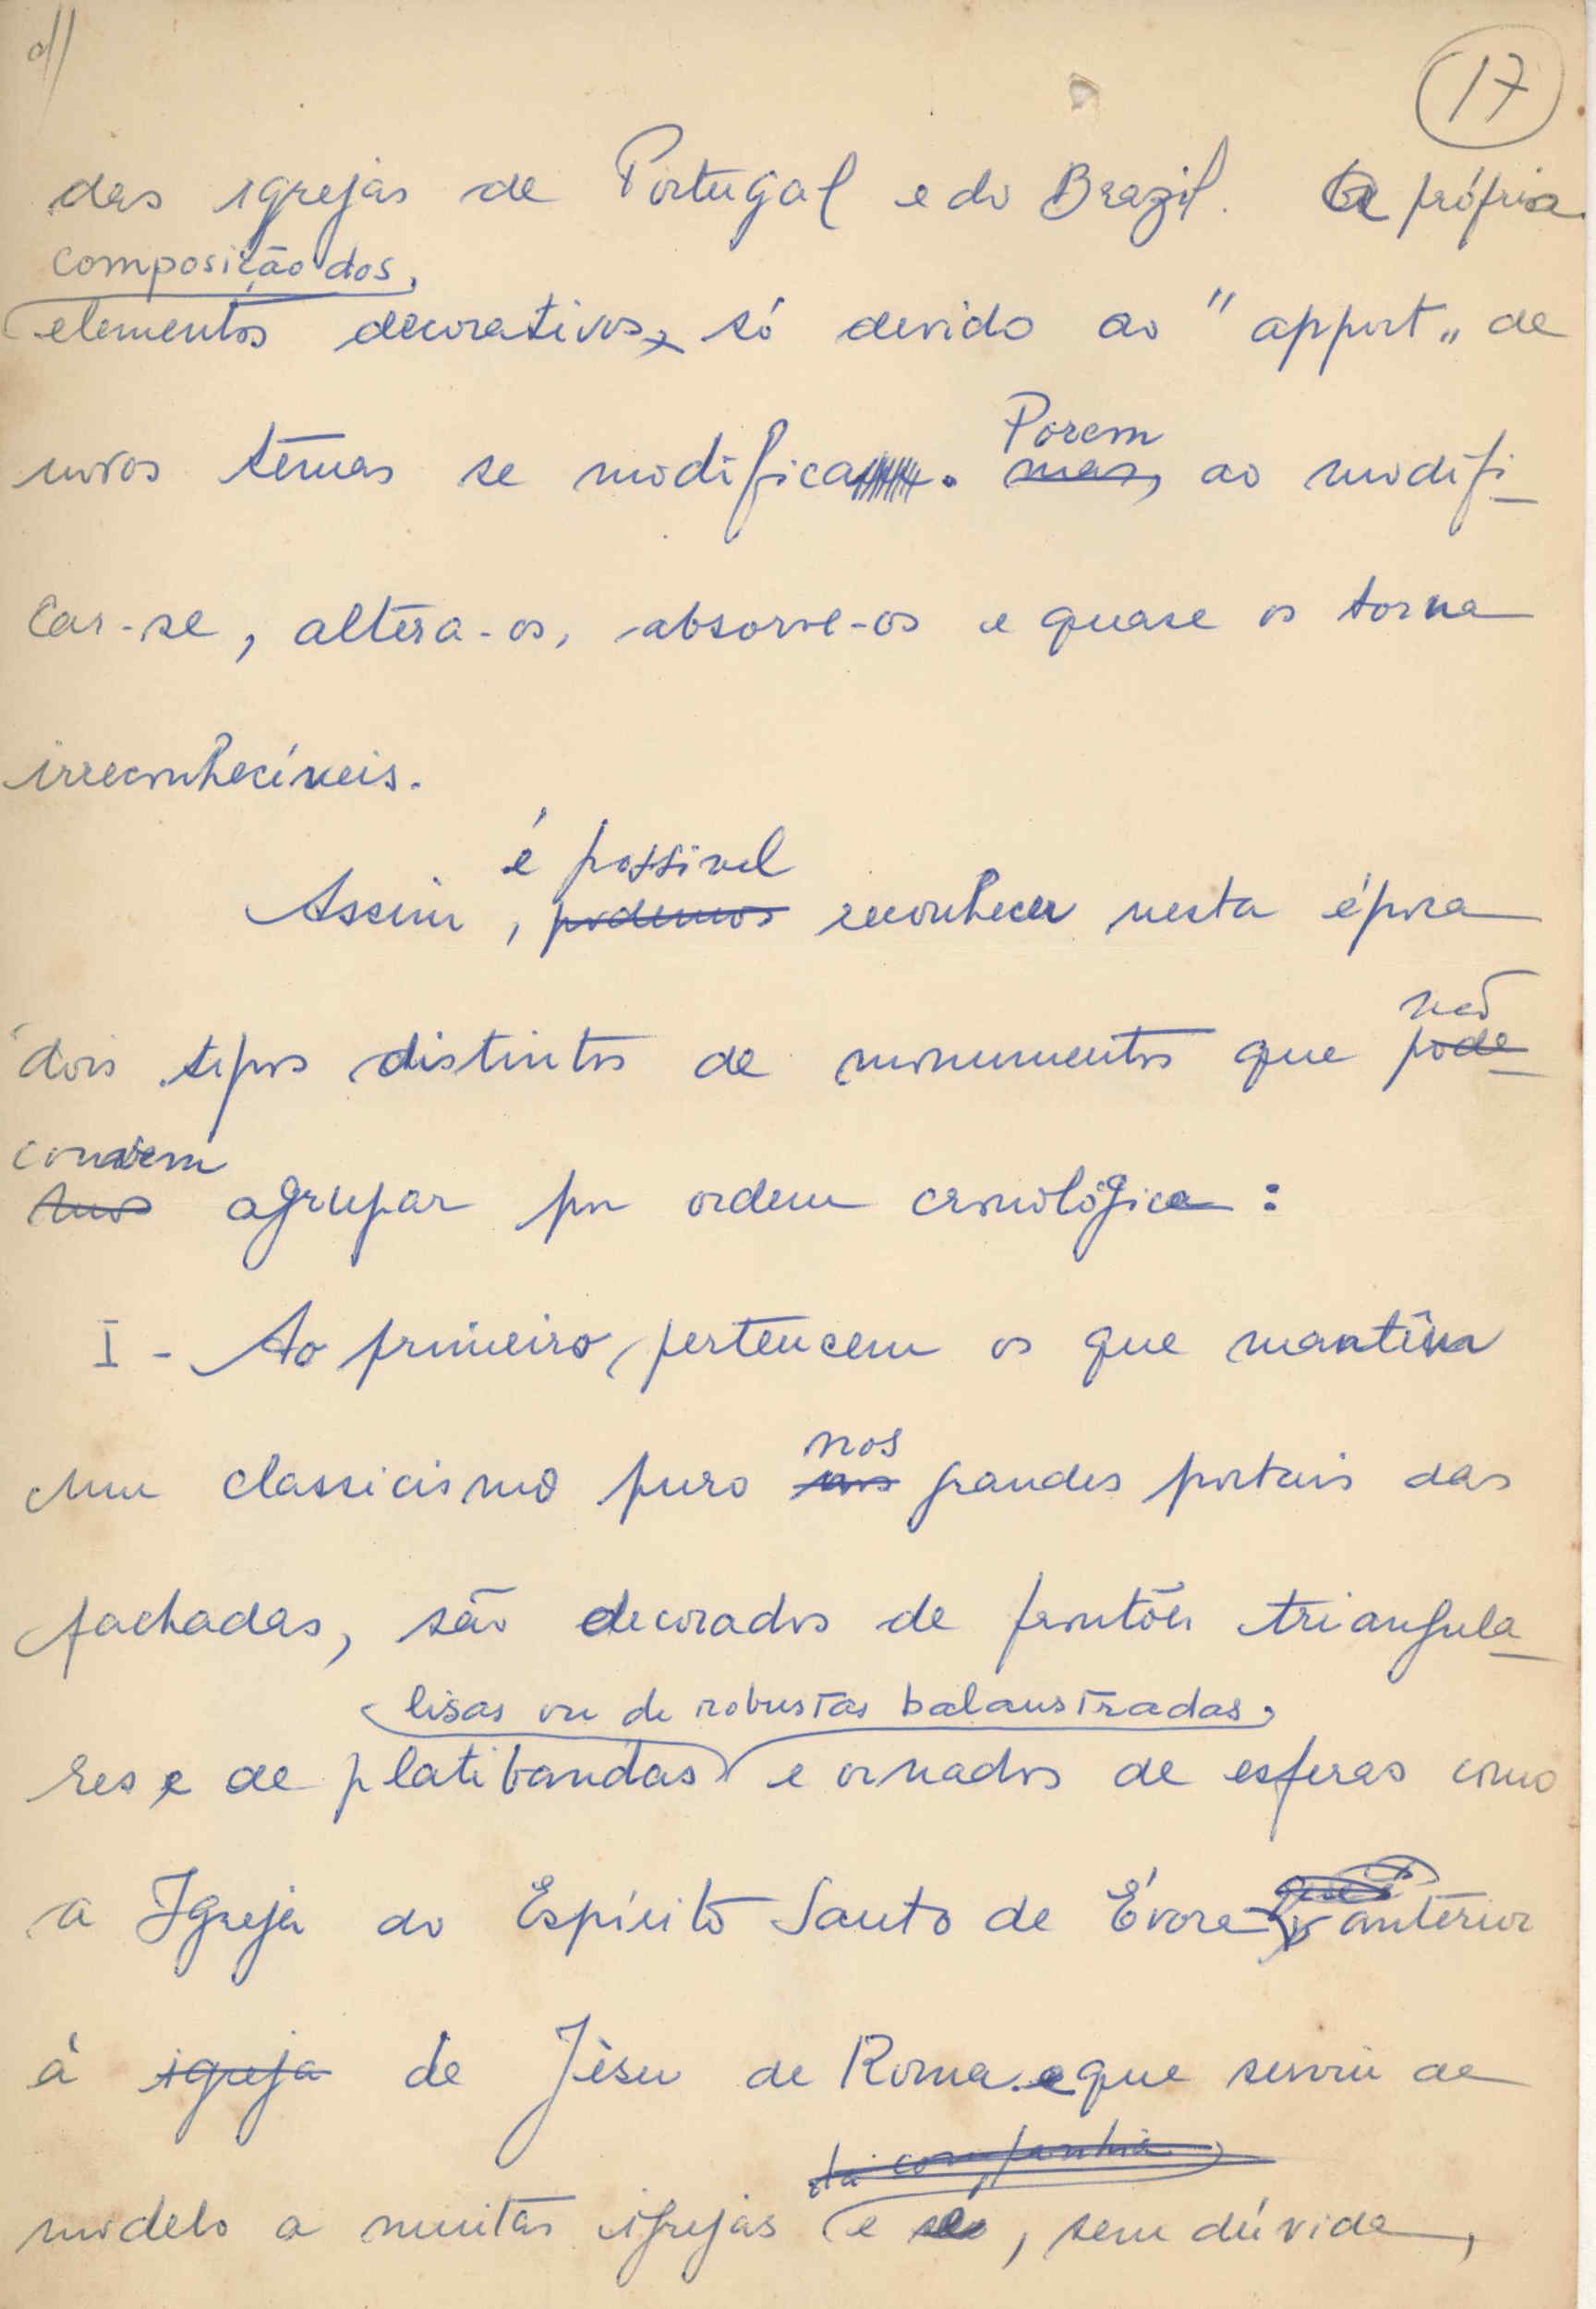 17
das igrejas de Portugal e do Brazil. A própria
composição dos
elementos decorativos, só devido ao "apport" de
novos temas se modifica.
Porem
mas, ao modifi-
car-se, altera-os, absorve-os e quase os torna
irreconhecíveis.
é possivel
Assim, podemos reconhecer nesta época
não
dois tipos distintos de monumentos que pode-
convem
mos agrupar por ordem cronológica:
I - Ao primeiro, pertencem os que mantêm
um classicismo puro
nos
nos grandes portais das
fachadas, são decorados de frontões triangula-
lisas ou de robustas balaustradas,
res e de platibandas e ornados de esferas como
a Igreja do Espírito Santo de Évora anterior
à igreja de Jèsu de Roma e que serviu de
da companhia
modelo a muitas igrejas e , sem dúvida,